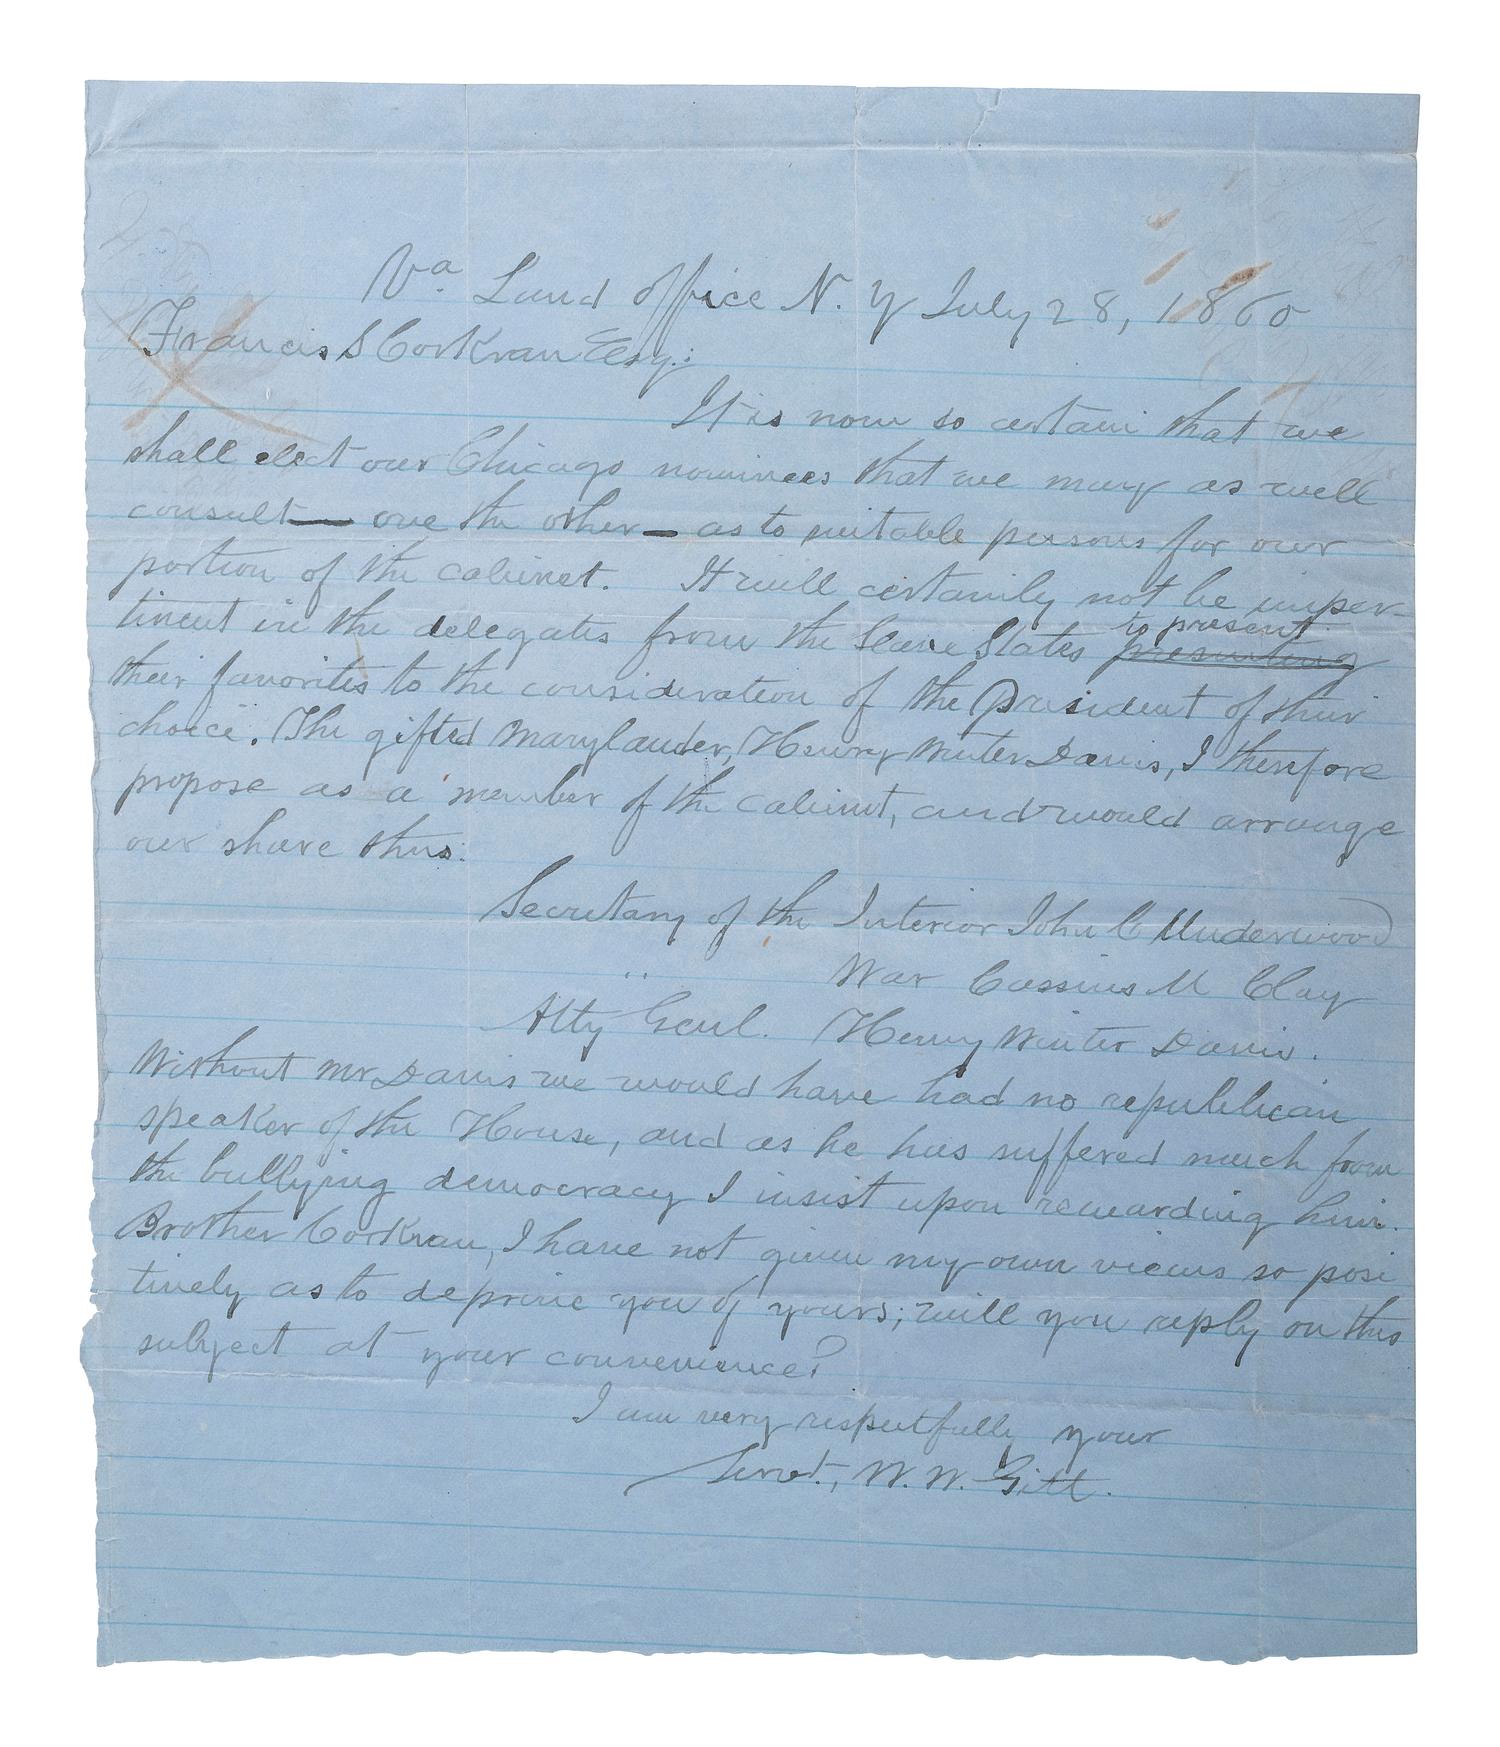 Va. Land Office N. Y July 28, 1860
Francis S Corkran Esq.:
It is now so certain that we
shall elect our Chicago nominees that we may as well
consult— one the other — as to suitable persons for our
portion of the cabinet. It will certainly not be imper-
to present
tinent in the delegates from the Slave States presenting
their favorites to the consideration of the President of their
choice. The gifted Marylander, Henry Winter Davis, I therefore
propose as a member of the cabinet, and would arrange
our share thus:
Secretary of the Interior John C Underwood
" War Cassius M Clay
Atty Genl. Henry Winter Davis.
Without Mr Davis we would have had no republican
speaker of the House, and as he has suffered much from
the bullying democracy I insist upon rewarding him.
Brother Corkran, I have not given my own views so posi
tively as to deprive you of yours; will you reply on this
subject at your convenience?
I am very respectfully your
Servt., W. W. Gitt.